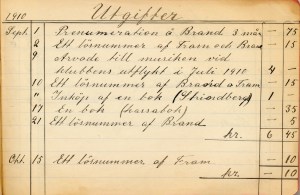 1910 Utgifter
Sept. 1 Prenumeration å Brand 3 mån — 75
2 Ett lösnummer af Fram och Brand — 15
9 Arvode till musiken vid
klubbens utflykt i Juli 1910 4 —
10 Ett lösnummer af Brand o Fram — 15
" Inköp af en bok 1 —
17 En bok (kassabok) — 35
21 Ett lösnummer af Brand — 5
kr. 6 45
Okt. 15 Ett lösnummer af Fram — 10
kr — 10